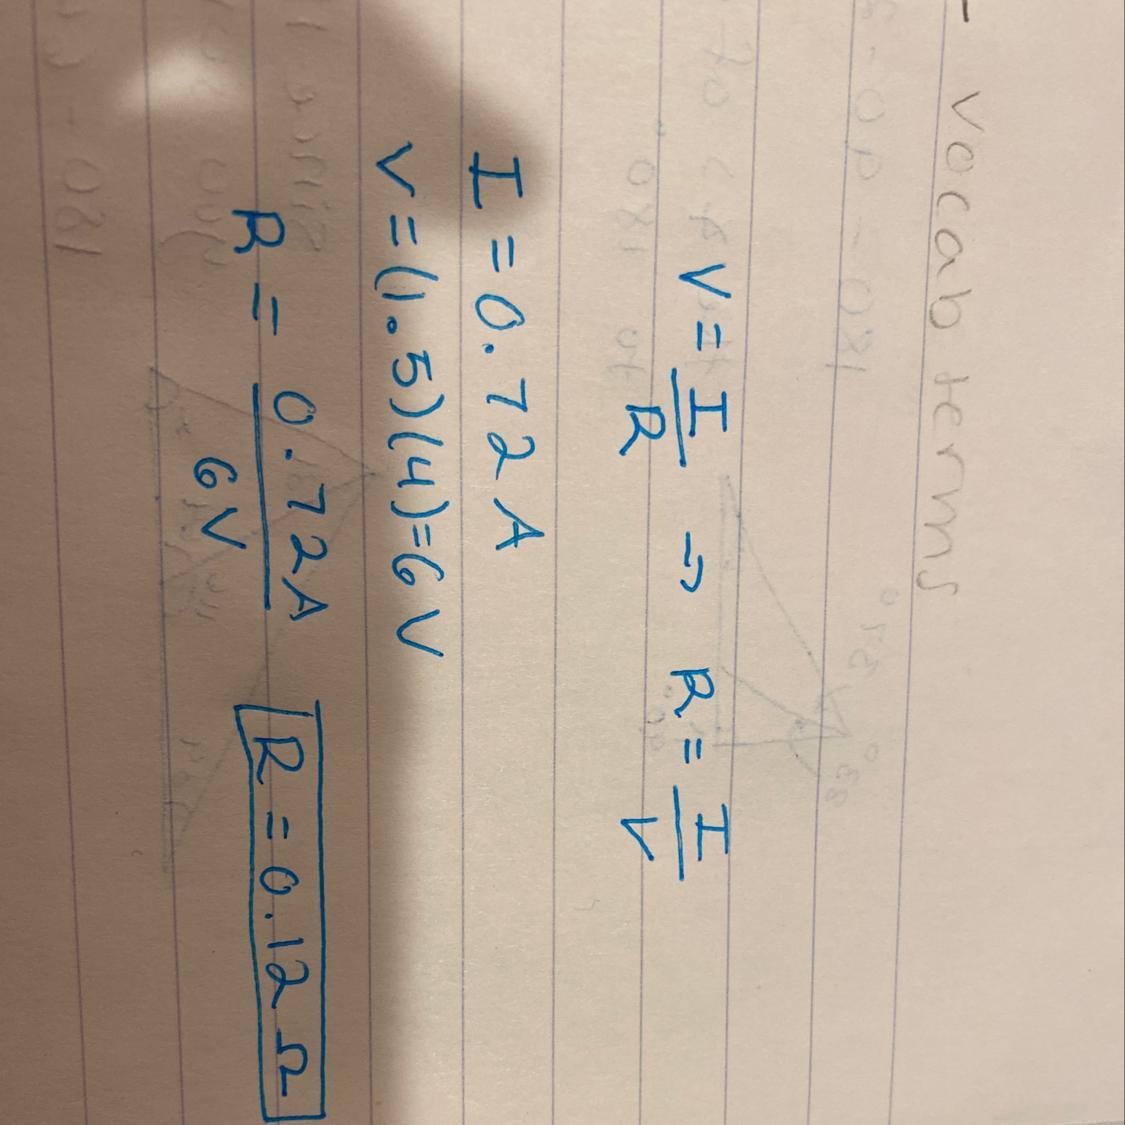 - vocab terms
V = I/R → R = I/V
I = 0.72 A
V = (1.5)(4) = 6 V
R = 0.72A/6V R = 0.12 Ω